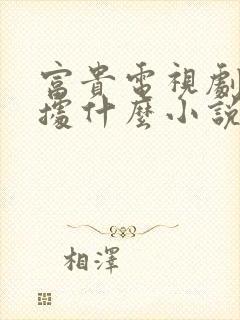 富貴電視劇
據什麼小說
相澤